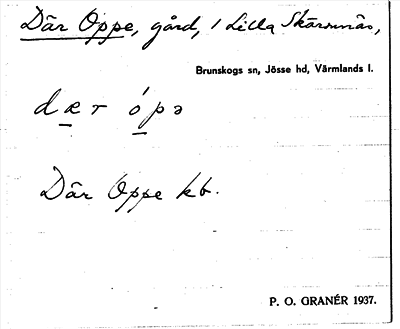 Där Oppe, gård, 1 Lilla Skärmnäs,
Brunskogs sn, Jösse hd, Värmlands l.
dærópə
Där Oppe kb.
P. O. GRANÉR 1937.